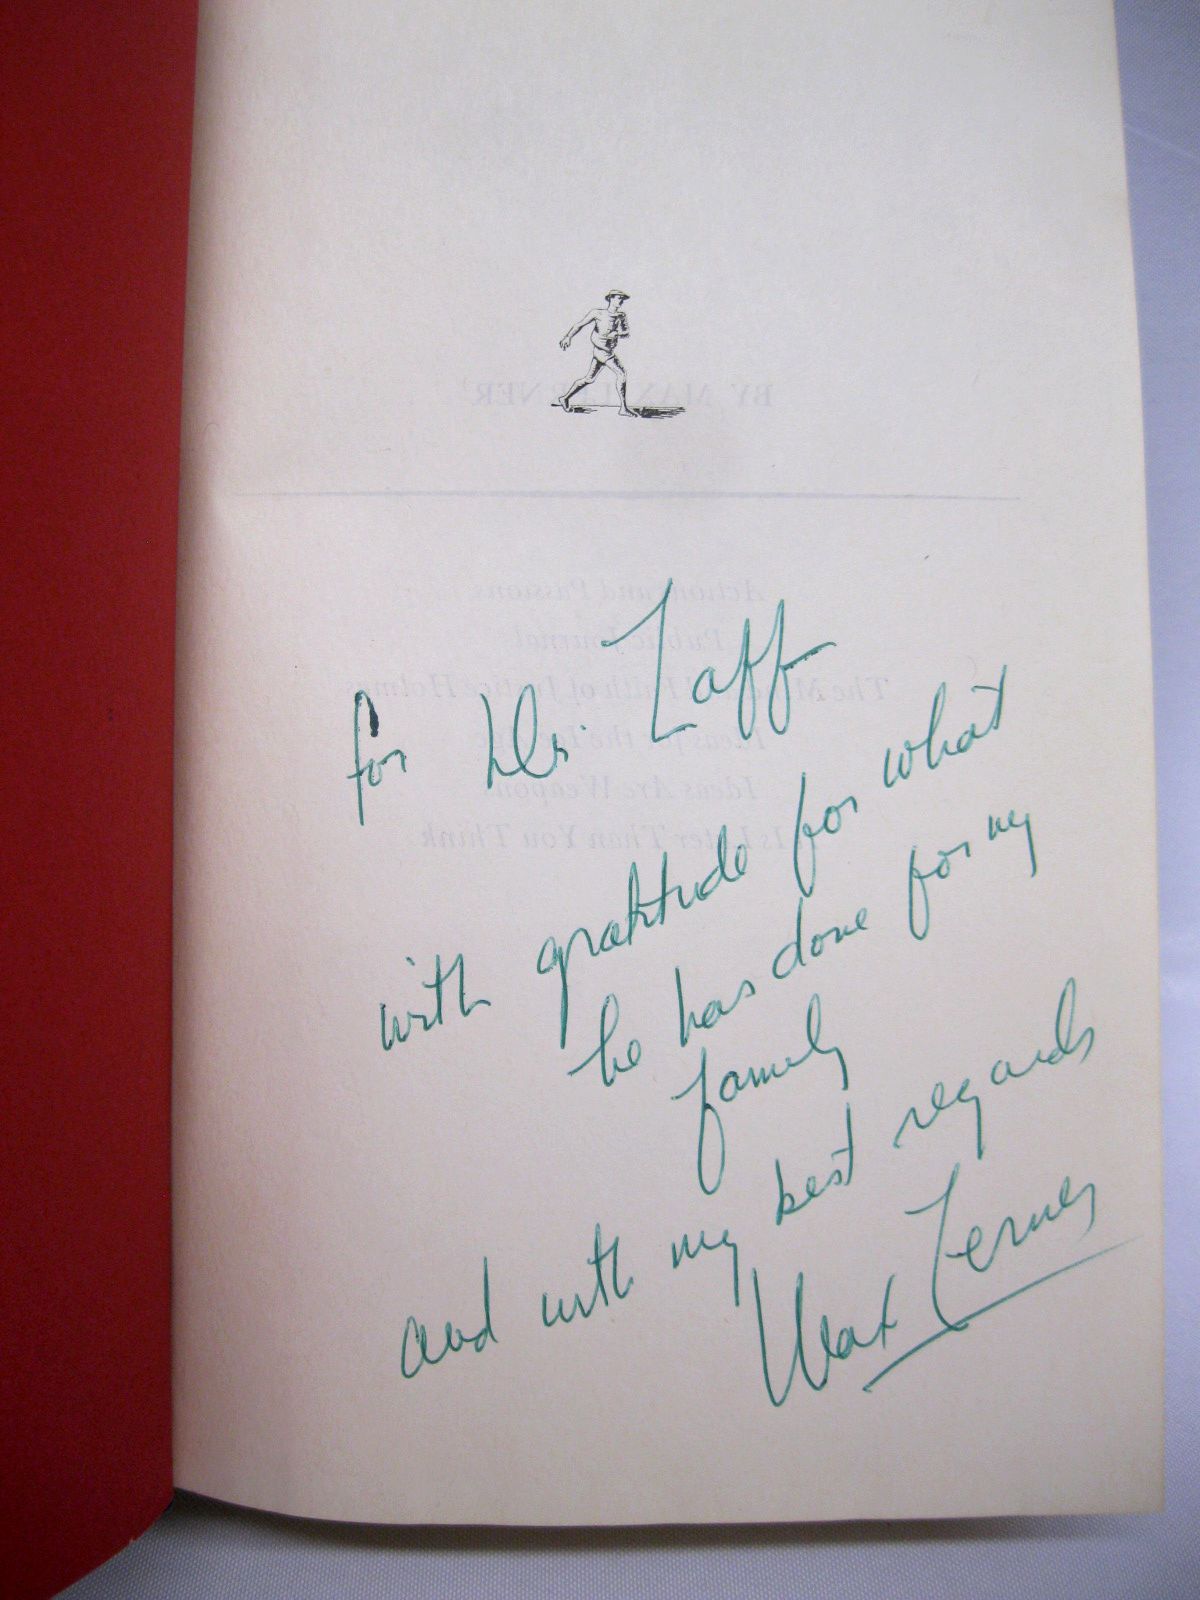 BY MAX LERNER
Actions and Passions
Public Journal
The Mind and Faith of Justice Holmes
Ideas for the Ice Age
Ideas Are Weapons
It Is Later Than You Think
for Dr. Laff
with gratitude for what
he has done for my
family
and with my best regards
Max Lerner